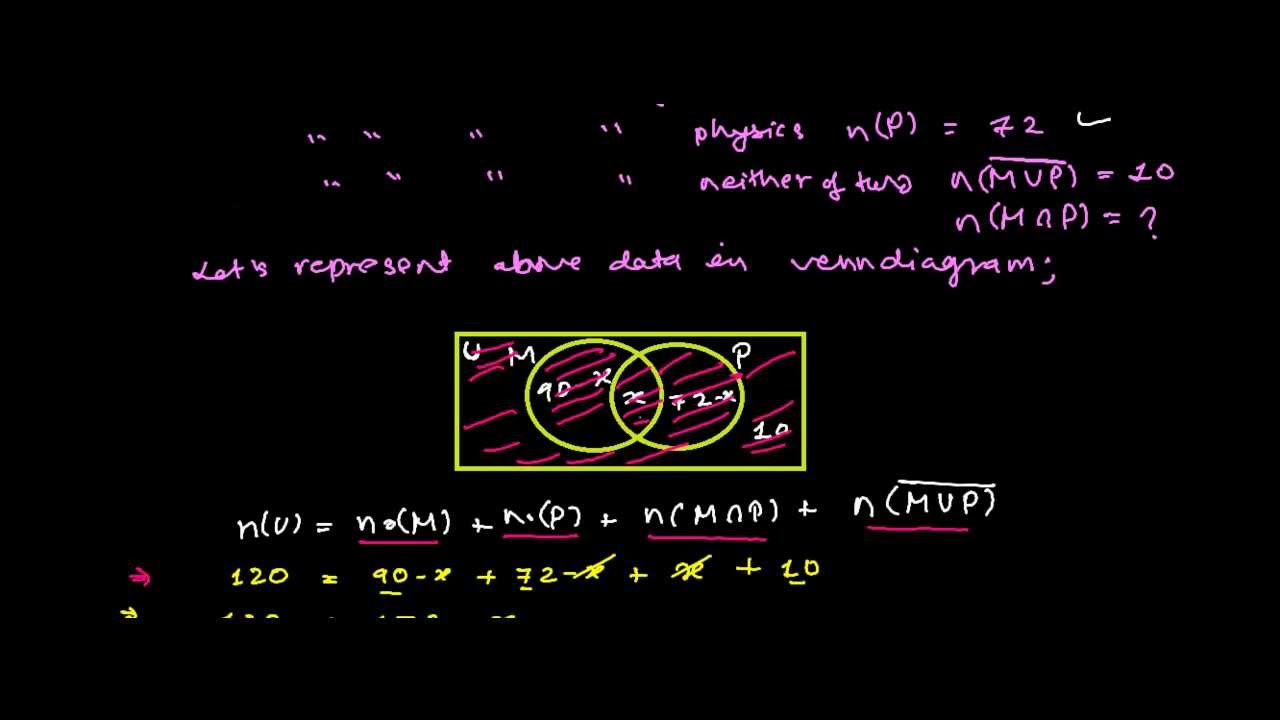 " " " " physics n(P) = 72
" " " " neither of two n(\overline{M∪P}) = 10
n(M∩P) = ?
Let's represent above data in venndiagram;
U M P
90-x x 72-x
10
n(U) = n₀(M) + n₀(P) + n(M∩P) + n(\overline{M∪P})
⇒ 120 = 90-x + 72-x + x + 10